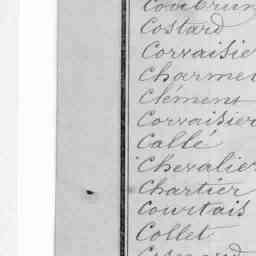 Costard
Corvaisier
Charmer
Clément
Corvaisier
Callé
Chevalier
Chartier
Courtais
Collet